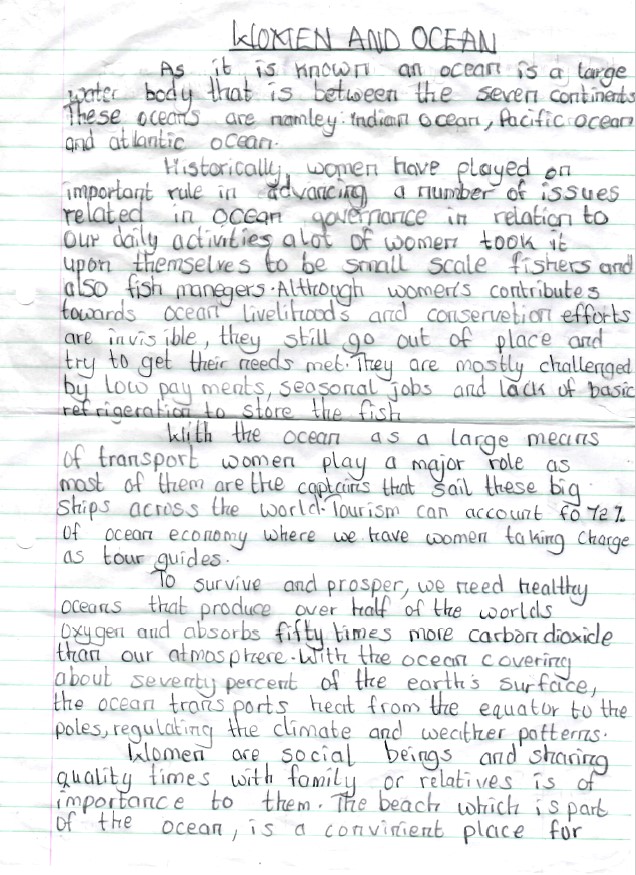 WOMEN AND OCEAN
As it is known an ocean is a large
water body that is between the seven continents
These oceans are namley: Indian ocean, Pacific ocean
and atlantic ocean.
Historically, women have played on
important rule in advancing a number of issues
related in ocean governance in relation to
our daily activities a lot of women took it
upon themselves to be small scale fishers and
also fish manegers. Although women's contributes
towards ocean livelihoods and conservetion efforts
are invisible, they still go out of place and
try to get their needs met. They are mostly challenged
by low pay ments, seasonal jobs and lack of basic
refrigeration to store the fish
With the ocean as a large means
of transport women play a major role as
most of them are the captains that sail these big
ships across the world. Tourism can account fo 72%
of ocean economy where we have women taking charge
as tour guides.
To survive and prosper, we need healthy
oceans that produce over half of the worlds
oxygen and absorbs fifty times more carbon dioxide
than our atmosphere. With the ocean covering
about seventy percent of the earth's surface,
the ocean transports heat from the equator to the
poles, regulating the climate and weather patterns.
Women are social beings and sharing
quality times with family or relatives is of
importance to them. The beach which is part
of the ocean, is a convinient place for